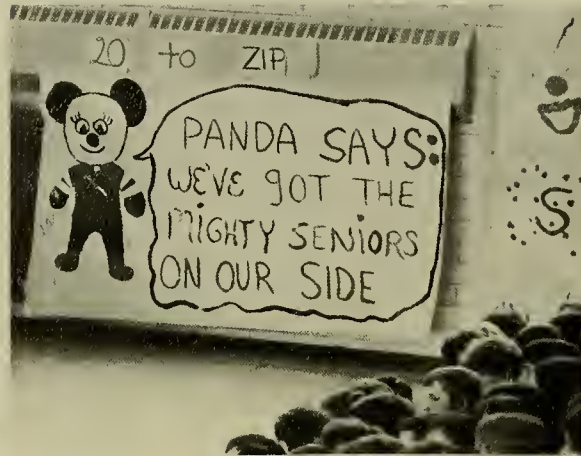 20 to ZIP
PANDA SAYS:
WE'VE GOT THE
MIGHTY SENIORS
ON OUR SIDE
S